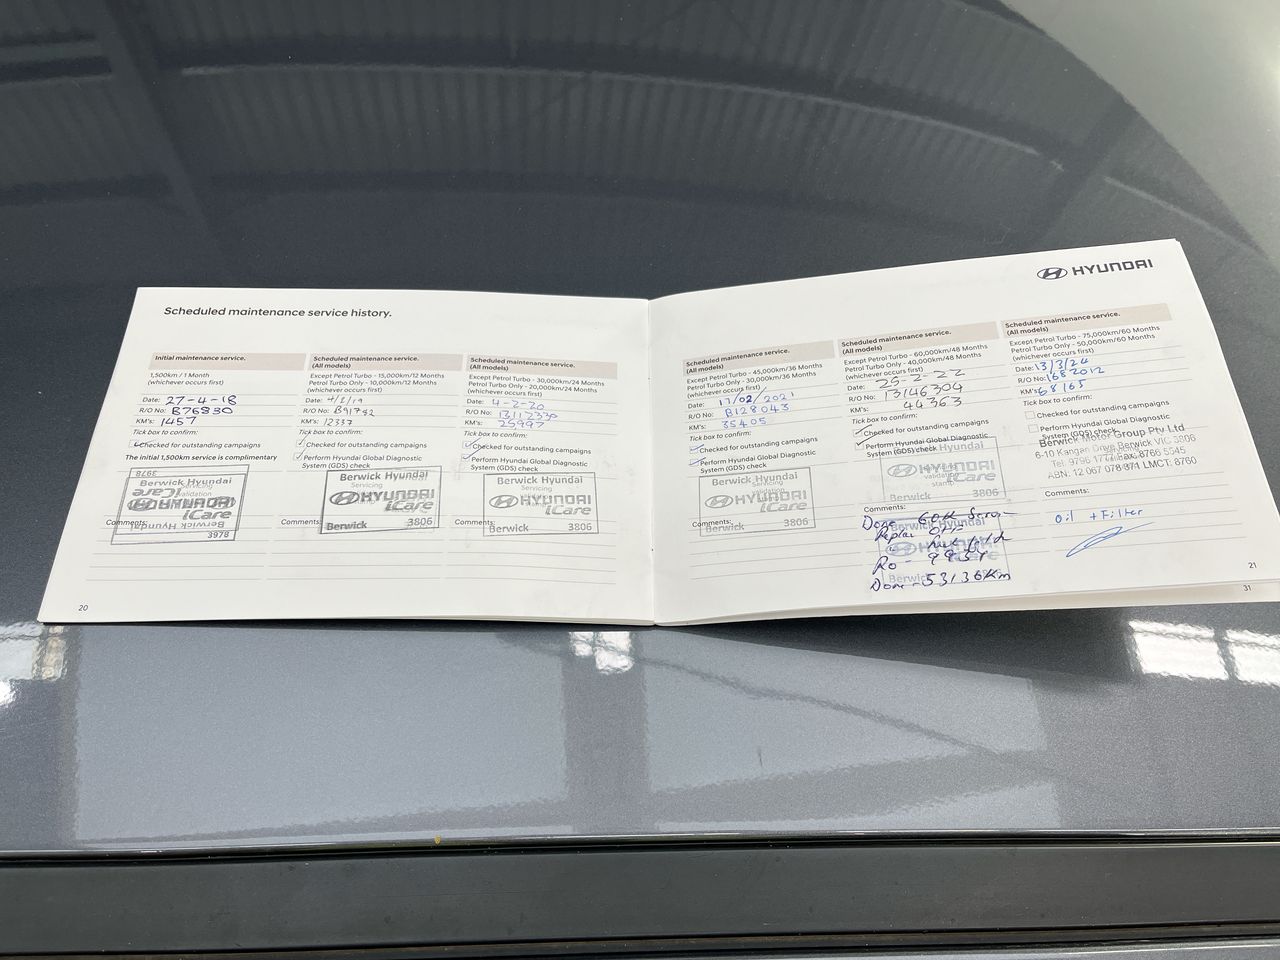 Scheduled maintenance service history.
Initial maintenance service.
1,500km / 1 Month
(whichever occurs first)
Date: 27-4-18
R/O No: B76830
KM's: 1457
Tick box to confirm:
Checked for outstanding campaigns
The initial 1,500km service is complimentary
Berwick Hyundai
Servicing
validation
HYUNDAI
iCare
3978
Comments:
20
Scheduled maintenance service.
(All models)
Except Petrol Turbo - 15,000km/12 Months
Petrol Turbo Only - 10,000km/12 Months
(whichever occurs first)
Date: 4/3/19
R/O No: B91742
KM's: 12337
Tick box to confirm:
Checked for outstanding campaigns
Perform Hyundai Global Diagnostic
System (GDS) check
Berwick Hyundai
Servicing
HYUNDAI
iCare
Berwick 3806
Comments:
Scheduled maintenance service.
(All models)
Except Petrol Turbo - 30,000km/24 Months
Petrol Turbo Only - 20,000km/24 Months
(whichever occurs first)
Date: 4-2-20
R/O No: B112330
KM's: 25997
Tick box to confirm:
Checked for outstanding campaigns
Perform Hyundai Global Diagnostic
System (GDS) check
Berwick Hyundai
Servicing
HYUNDAI
iCare
Berwick 3806
Comments:
HYUNDAI
Scheduled maintenance service.
(All models)
Except Petrol Turbo - 45,000km/36 Months
Petrol Turbo Only - 30,000km/36 Months
(whichever occurs first)
Date: 17/02/2021
R/O No: B128043
KM's: 35405
Tick box to confirm:
Checked for outstanding campaigns
Perform Hyundai Global Diagnostic
System (GDS) check
Berwick Hyundai
Servicing
HYUNDAI
iCare
Berwick 3806
Comments:
Scheduled maintenance service.
(All models)
Except Petrol Turbo - 60,000km/48 Months
Petrol Turbo Only - 40,000km/48 Months
(whichever occurs first)
Date: 25-2-22
R/O No: 13146304
KM's: 44363
Tick box to confirm:
Checked for outstanding campaigns
Perform Hyundai Global Diagnostic
System (GDS) check
Berwick Hyundai
validation
stamp
HYUNDAI
iCare
3806
Done 60K
Berwick Hyundai
Ro - 9954
Berwick
Done - 53136Km
Scheduled maintenance service.
(All models)
Except Petrol Turbo - 75,000km/60 Months
Petrol Turbo Only - 50,000km/60 Months
(whichever occurs first)
Date: 13/3/24
R/O No: 1682012
KM's: 68165
Tick box to confirm:
Checked for outstanding campaigns
Perform Hyundai Global Diagnostic
System (GDS) check
Berwick Motor Group Pty Ltd
6-10 Kangan Drive Berwick VIC 3806
ABN: 12 067 078 871 LMCT: 8760
Comments:
Oil + Filter
21
31